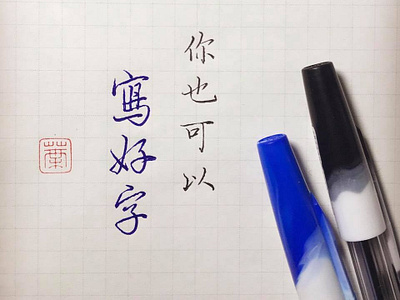 你也可以
寫好字
葉